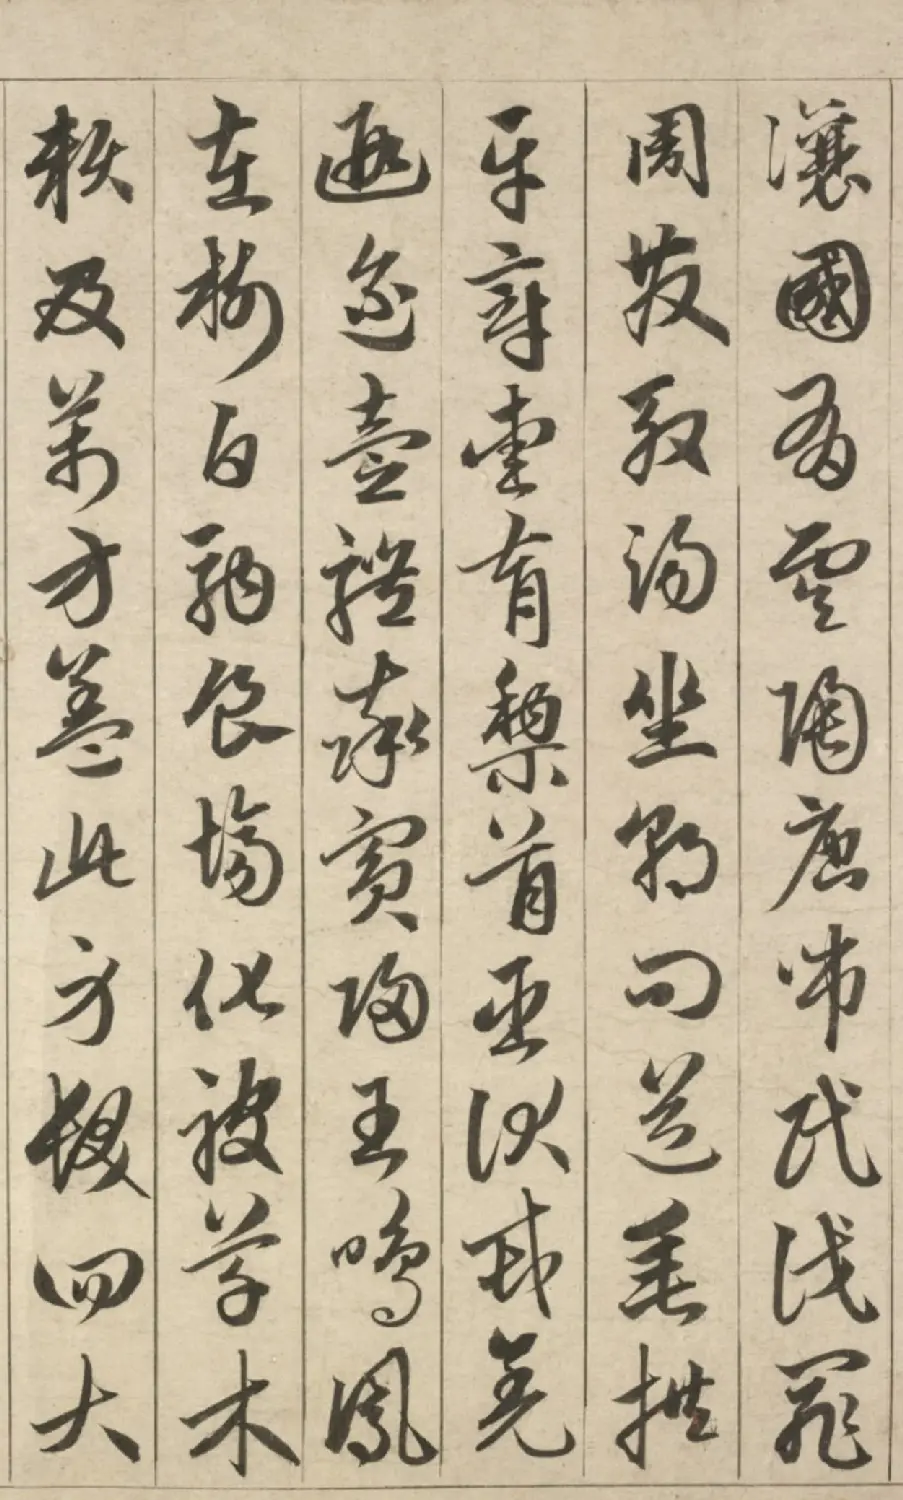 讓國有虞陶唐吊民伐罪
周發殷湯坐朝問道垂拱
平章愛育黎首臣伏戎羌
遐邇壹體率賓歸王鳴鳳
在樹白駒食場化被草木
賴及萬方蓋此身髮四大